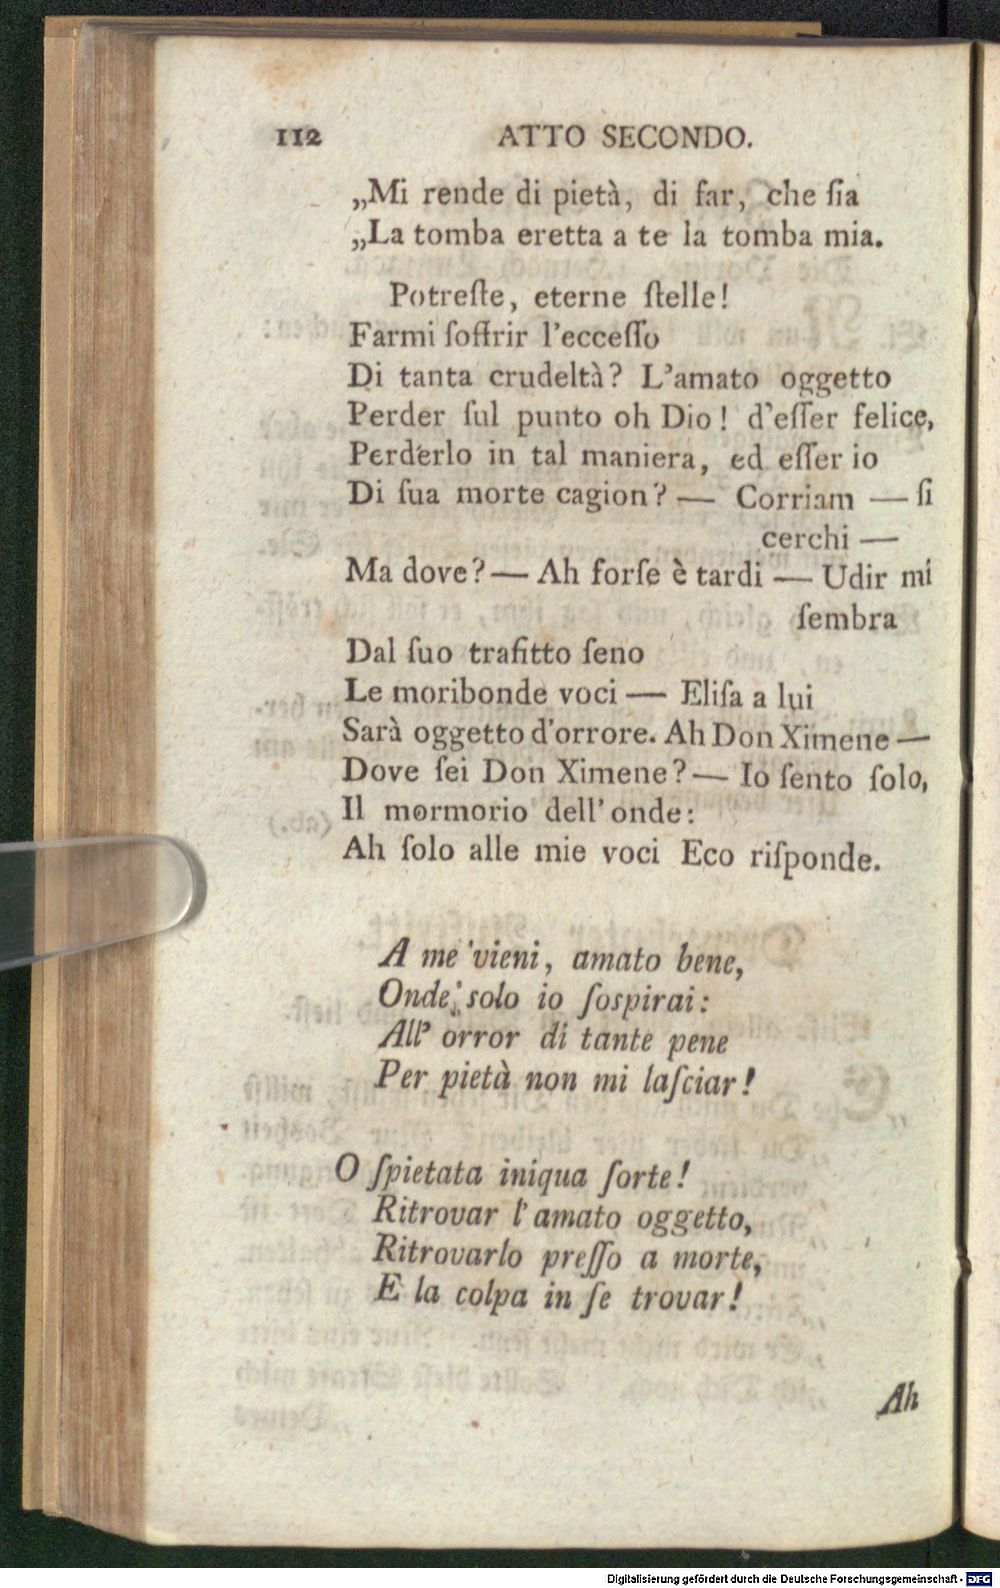 112 ATTO SECONDO.
„Mi rende di pietà, di far, che ſia
„La tomba eretta a te la tomba mia.
Potreſte, eterne ſtelle!
Farmi ſoffrir l'ecceſſo
Di tanta crudeltà? L'amato oggetto
Perder ſul punto oh Dio! d'eſſer felice,
Perderlo in tal maniera, ed eſſer io
Di ſua morte cagion? — Corriam — ſi
cerchi —
Ma dove? — Ah forſe è tardi — Udir mi
ſembra
Dal ſuo trafitto ſeno
Le moribonde voci — Eliſa a lui
Sarà oggetto d'orrore. Ah Don Ximene —
Dove ſei Don Ximene? — Io ſento ſolo,
Il mormorio dell' onde:
Ah ſolo alle mie voci Eco riſponde.
A me vieni, amato bene,
Onde solo io ſospirai:
All' orror di tante pene
Per pietà non mi laſciar!
O ſpietata iniqua ſorte!
Ritrovar l' amato oggetto,
Ritrovarlo preſſo a morte,
E la colpa in ſe trovar!
Ah
Digitalisierung gefördert durch die Deutsche Forschungsgemeinschaft - DFG